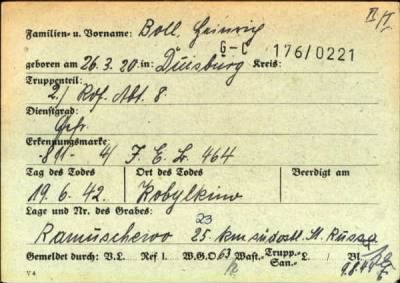 II/I
Familien- u. Vorname: Boll, Heinrich
G-C 176/0221
geboren am 26.3.20 in: Duisburg Kreis:
Truppenteil:
2./ Kof. Abt. 8
Dienstgrad:
Gefr.
Erkennungsmarke:
-811- 4/ F.E.L. 464
Tag des Todes Ort des Todes Beerdigt am
19.6.42. Kobylkino
Lage und Nr. des Grabes:
23
Ramuschewo 25 km südostl. St. Russa
Gemeldet durch: V.L. Ref I. W.G.O 63 Wast.- Trupp.- San.- L. Bl.
V 4